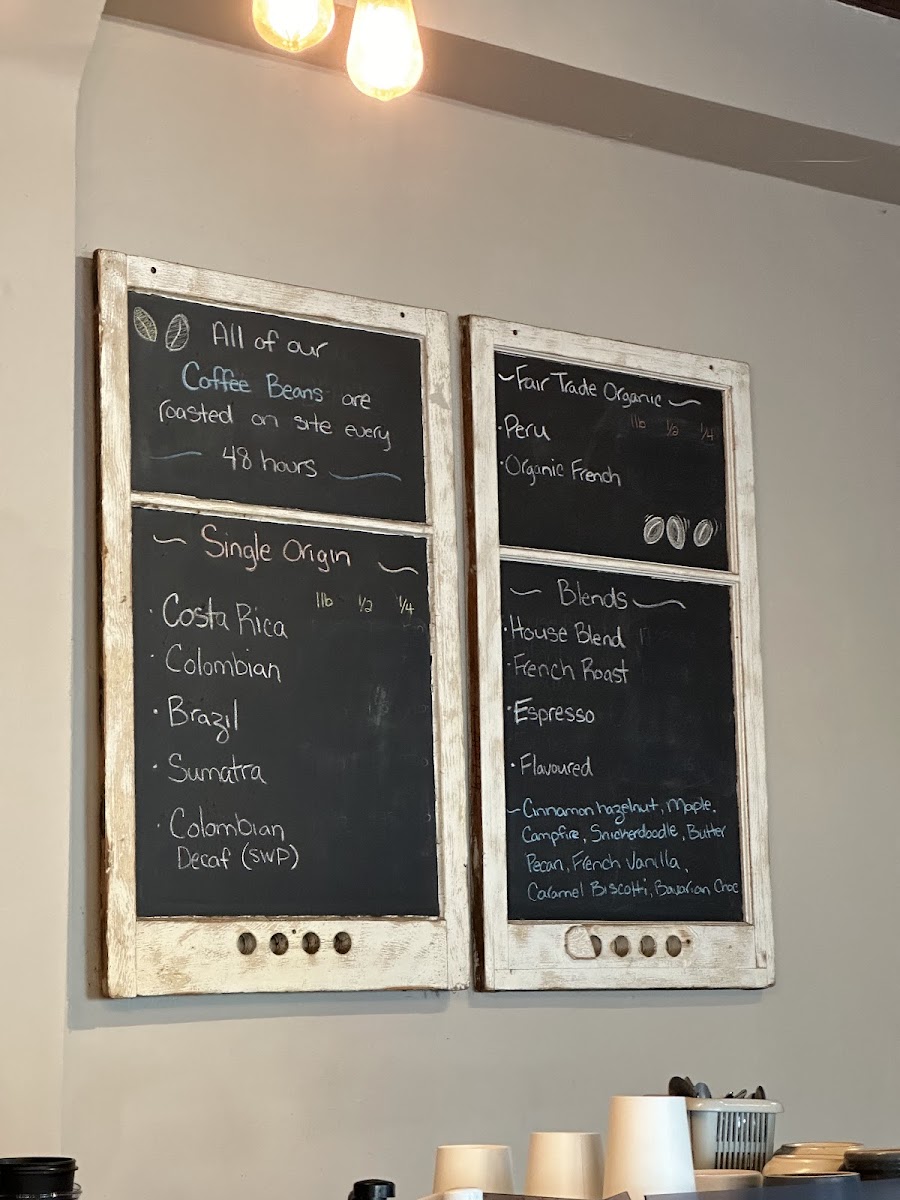 All of our
Coffee Beans are
roasted on site every
48 hours
Single Origin
1lb 1/2 1/4
· Costa Rica
· Colombian
· Brazil
· Sumatra
· Colombian
Decaf (SWP)
Fair Trade Organic
1lb 1/2 1/4
· Peru
· Organic French
Blends
· House Blend
· French Roast
· Espresso
· Flavoured
- Cinnamon hazelnut, Maple,
Campfire, Snickerdoodle, Butter
Pecan, French Vanilla,
Caramel Biscotti, Bavarian Choc